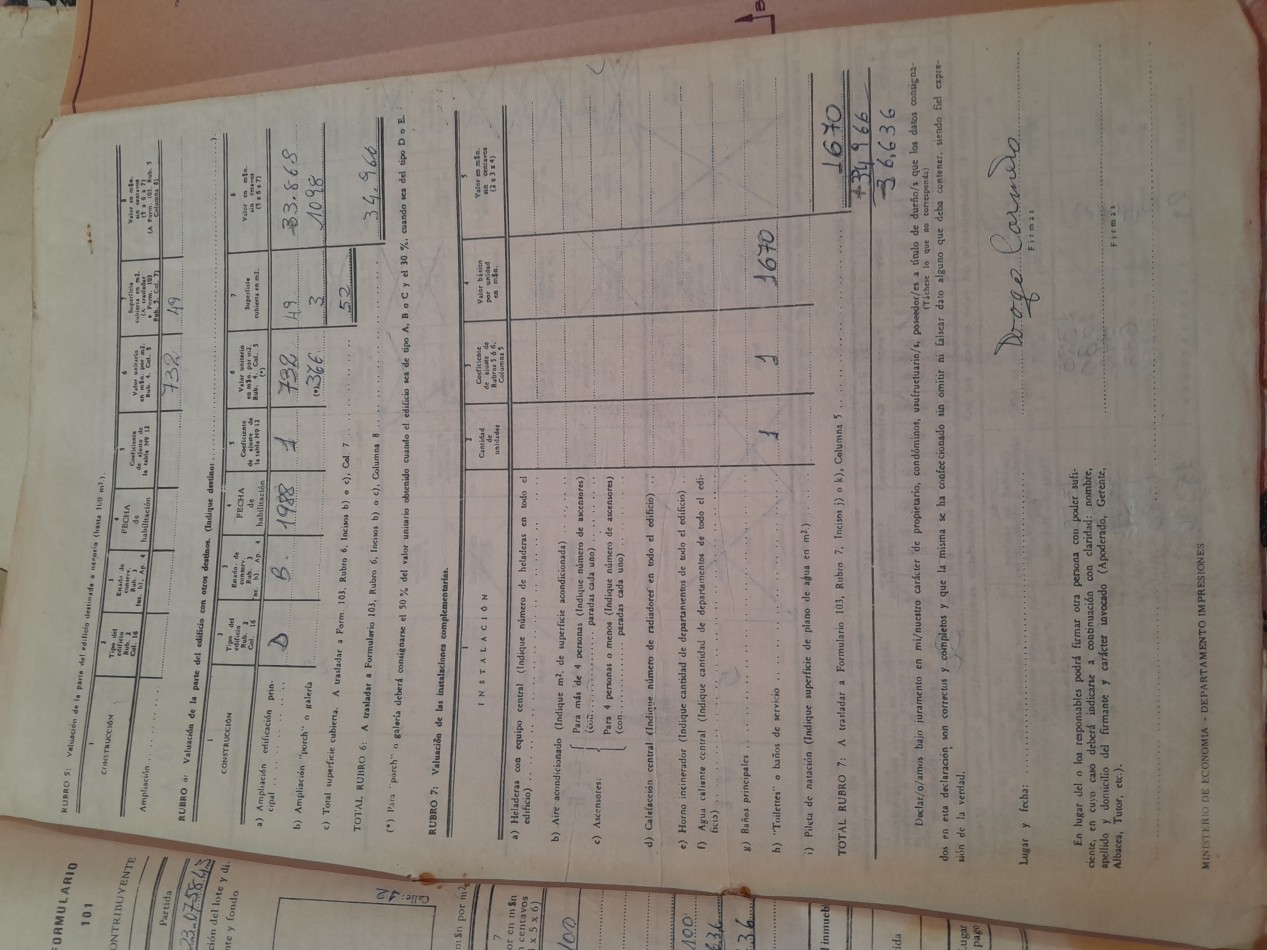 RUBRO 5: Valuación de la parte del edificio destinada a vivienda (hasta 100 m².)
1
CONSTRUCCIÓN
2
Tipo del
edificio
Rub. 2
Col. 16
3
Estado de
conserv.
Rub. 3
Inc. b), Ap. 4
4
FECHA
de
habilitación
5
Coeficiente
de ajuste de
la tabla Nº 12
6
Valor unitario
en m$n. por m2.
Rub. 4, Col. 5
7
Superficie
cubierta en m2.
(A trasladar
a Form. 103
Rub 5, Col. 7)
8
Valor en m$n.
sin centavos
(5 x 6 x 7)
(A Form. 103, Rub. 5
Columna 8)
Ampliación
732
49
RUBRO 6: Valuación de la parte del edificio con otros destinos. (Indique destino:
1
CONSTRUCCIÓN
2
Tipo del
edificio
Rub. 2
Col. 16
3
Estado de
conserv.
Rub. 3
Inc. b), Ap. 4
4
FECHA
de
habilitación
5
Coeficiente
de ajuste de
la tabla Nº 12
6
Valor unitario
en m$n. por m2.
Rub. 4, Col. 5
(*)
7
Superficie
cubierta en m2.
8
Valor en m$n.
sin centavos
(5 x 6 x 7)
a) Ampliación edificación prin-
cipal
D B. 1988 1 732 49 33.868
b) Ampliación "porch" o galería
(*) 366 3 1098
c) Total superficie cubierta. A trasladar a Form 103, Rubro 6, Incisos b) o c), Col 7
52
TOTAL RUBRO 6: A trasladar a Formulario 103, Rubro 6, Incisos b) o c), Columna 8
34.966
(*) Para "porch" o galería deberá consignarse el 50 % del valor unitario obtenido cuando el edificio sea de tipo A, B o C y el 30 %, cuando sea del tipo D o E.
RUBRO 7: Valuación de las instalaciones complementarias.
1
INSTALACIÓN
2
Cantidad
de
unidades
3
Coeficiente
de ajuste de
Rubros 5 ó 6,
Columna 5
4
Valor básico
por unidad
en m$n.
5
Valor en m$n.
sin centavos
(2 x 3 x 4)
a) Heladeras con equipo central (Indique número de heladeras en todo el
edificio)
b) Aire acondicionado (Indique m², de superficie acondicionada)
c) Ascensores:
Para más de 4 personas (Indique número de ascensores)
(con paradas cada uno)
Para 4 personas o menos (Indique número de ascensores)
(con paradas cada uno)
d) Calefacción central (Indique número de radiadores en todo el edificio)
e) Horno incinerador (Indique cantidad de departamentos de todo el edificio)
f) Agua caliente central (Indique cantidad de departamentos de todo el edi-
ficio)
g) Baños principales
1 1 1670
h) "Toilettes" o baños de servicio
i) Pileta de natación (Indique superficie de plano de agua en m².)
TOTAL RUBRO 7: A trasladar a Formulario 103, Rubro 7, Incisos j) o k), Columna 5
1670
+34966
36.636
Declar/o/amos bajo juramento en mi/nuestro carácter de propietario, condóminos, usufructuario/s, poseedor/es a título de dueño/s que los datos consigna-
(Táchese lo que no corresponda)
dos en esta declaración son correctos y completos y que la misma se ha confeccionado sin omitir ni falsear dato alguno que deba contener, siendo fiel expre-
sión de la verdad.
Lugar y fecha:
Firmas
En lugar del o los responsables podrá firmar otra persona con poder sufi-
ciente, en cuyo caso deberá indicarse a continuación con claridad: nombre,
apellido y domicilio del firmante y carácter invocado (Apoderado, Gerente,
Albacea, Tutor, etc.).
Firmas
MINISTERIO DE ECONOMIA - DEPARTAMENTO IMPRESIONES
FORMULARIO
101
CONTRIBUYENTE
Partida
Calle: